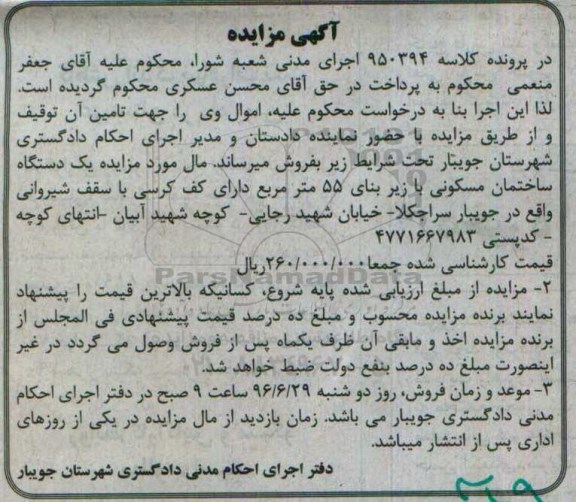 آگهی مزایده
در پرونده کلاسه ۹۵۰۳۹۴ اجرای مدنی شعبه شورا، محکوم علیه آقای جعفر
منعمی محکوم به پرداخت در حق آقای محسن عسکری محکوم گردیده است.
لذا این اجرا بنا به درخواست محکوم علیه، اموال وی را جهت تامین آن توقیف
و از طریق مزایده با حضور نماینده دادستان و مدیر اجرای احکام دادگستری
شهرستان جویبار تحت شرایط زیر بفروش میرساند. مال مورد مزایده یک دستگاه
ساختمان مسکونی با زیر بنای ۵۵ متر مربع دارای کف کرسی با سقف شیروانی
واقع در جویبار سراجکلا- خیابان شهید رجایی- کوچه شهید آبیان -انتهای کوچه
- کدپستی ۴۷۷۱۶۶۷۹۸۳
قیمت کارشناسی شده جمعا ۲۶۰/۰۰۰/۰۰۰ریال
ParsNamadData
۲- مزایده از مبلغ ارزیابی شده پایه شروع، کسانیکه بالاترین قیمت را پیشنهاد
نمایند برنده مزایده محسوب و مبلغ ده درصد قیمت پیشنهادی فی المجلس از
برنده مزایده اخذ و مابقی آن ظرف یکماه پس از فروش وصول می گردد در غیر
اینصورت مبلغ ده درصد بنفع دولت ضبط خواهد شد.
۳- موعد و زمان فروش، روز دو شنبه ۹۶/۶/۲۹ ساعت ۹ صبح در دفتر اجرای احکام
مدنی دادگستری جویبار می باشد. زمان بازدید از مال مزایده در یکی از روزهای
اداری پس از انتشار میباشد.
دفتر اجرای احکام مدنی دادگستری شهرستان جویبار